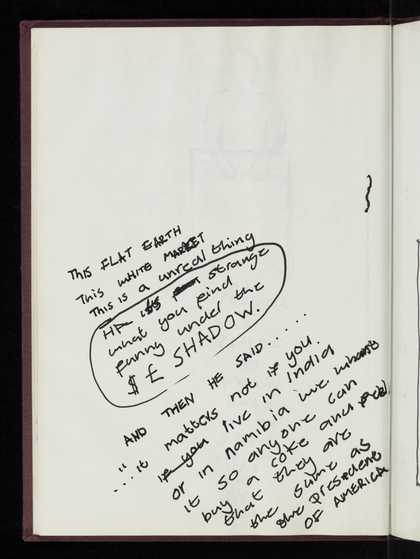 THIS FLAT EARTH
This WHITE MARKET
This is a unreal thing
strange
what you find
funny under the
$ £ SHADOW.
AND THEN HE SAID......
"... it matters not if you
if you live in India
or in namibia we
it so anyone can
buy a coke and feel
that they are
the same as
the president
OF AMERICA